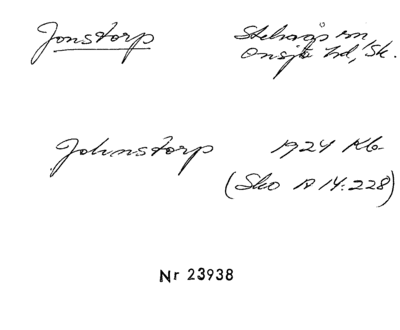 Jonstorp
Stehags sn
Onsjö hd, Sk.
Johnstorp 1924 Kb
(Sko A 14:228)
Nr 23938